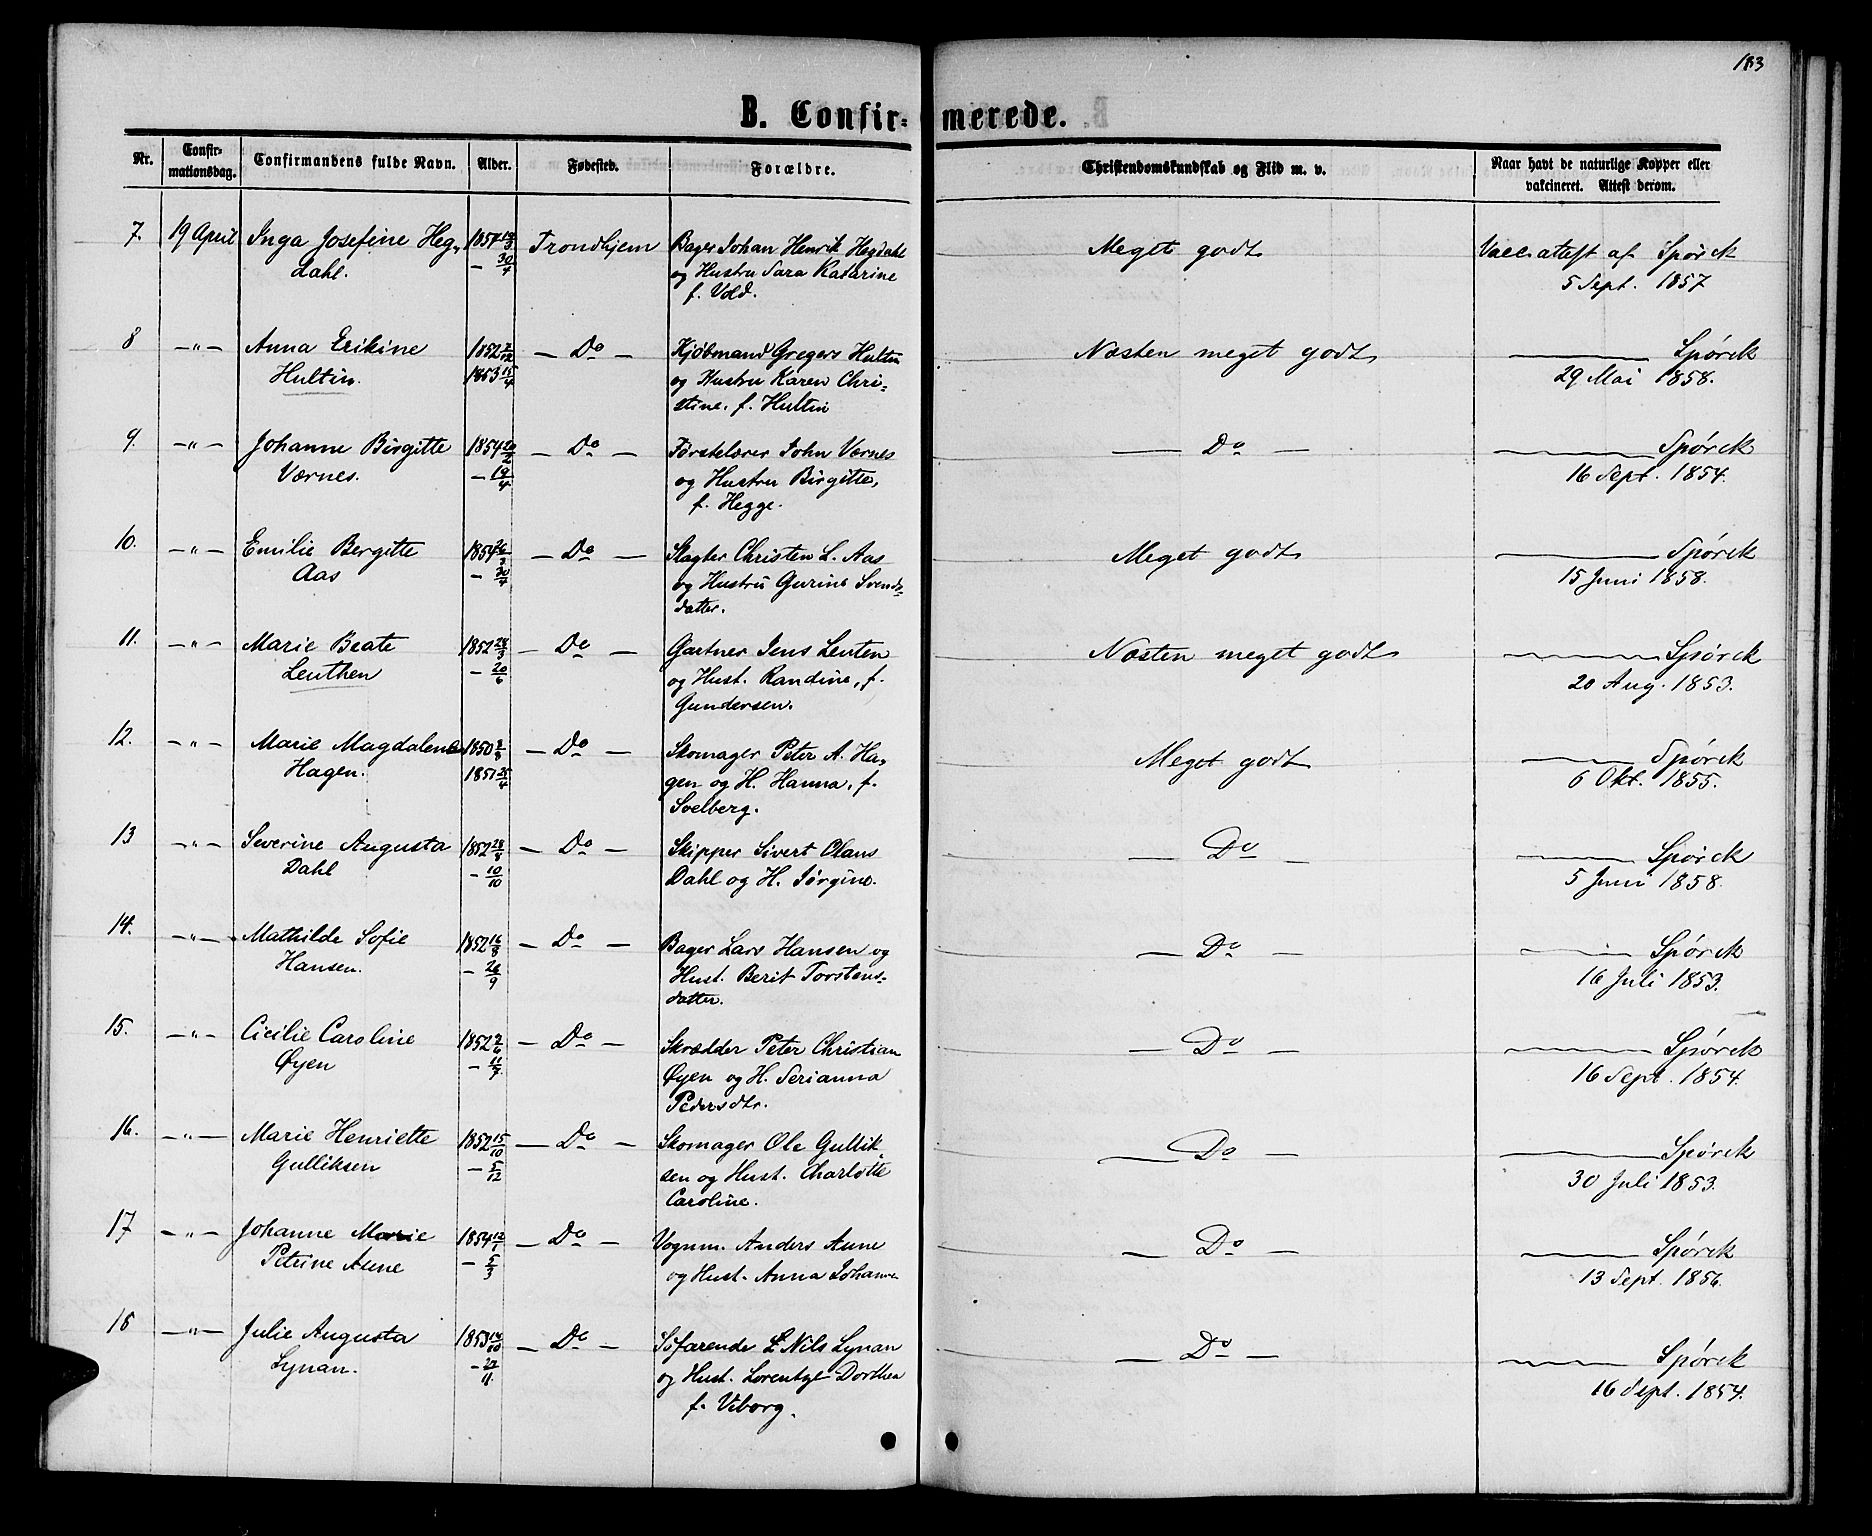 183
B. Confirmerede.
Nr. Confirmationsdag. Confirmandens fulde Navn. Alder. Fødested. Forældre. Christendomskundskab og Flid m. v. Naar havt de naturlige Kopper eller vakcineret. Attest derom.
7. 19 April Inga Josefine Heg- 1854 3 Trondhjem Bager Johan Henrik Hegdahl Meget godt Vacc. attest af Spørck
dahl. — 30/4 og Hustru Sara Katarine 5 Sept. 1857
f. Vold.
8 —„— Anna Erikine 1852 2/12 — Do — Kjøbmand Gregers Hultin Næsten meget godt Spørck
Hultin. 1853 15/4 og Hustru Karen Chri- 29 Mai 1858.
stine, f. Hultin
9. —„— Johanne Birgitte 1854 20/2 — Do — Førstelærer John Værnes — Do — Spørck
Værnes. — 19/4 og Hustru Birgitte, 16 Sept. 1854.
f. Hegge.
10. —„— Emilie Bergitte 1854 26/3 — Do — Slagter Christen L. Aas Meget godt Spørck
Aas — 30/4 og Hustru Gurine Svends- 15 Juni 1858.
datter.
11. —„— Marie Beate 1852 28/3 — Do — Gartner Jens Leuten Næsten meget godt Spørck
Leuthen — 20/6 og Hust. Randine, f. 20 Aug. 1853.
Gundersen.
12. —„— Marie Magdalene 1850 2/8 — Do — Skomager Peter A. Ha- Meget godt Spørck
Hagen. 1851 25/4 gen og H. Hanna, f. 6 Okt. 1855.
Soelberg.
13 —„— Severine Augusta 1852 28/8 — Do — Skipper Sivert Olaus — Do — Spørck
Dahl — 10/10 Dahl og H. Jørgine. 5 Juni 1858.
14. —„— Mathilde Sofie 1852 16/8 — Do — Bager Lars Hansen og — Do — Spørck
Hansen. — 26/9 Hust. Berit Torstens- 16 Juli 1853.
datter.
15. —„— Cicilie Caroline 1852 2/6 — Do — Skrædder Peter Christian — Do — Spørck
Øyen — 11/7 Øyen og H. Serianna 16 Sept. 1854.
Pedersdtr.
16. —„— Marie Henriette 1852 15/10 — Do — Skomager Ole Gullik- — Do — Spørck
Gulliksen — 5/12 sen og Hust. Charlotte 30 Juli 1853.
Caroline.
17 —„— Johanne Marie 1854 12/1 — Do — Vognm. Anders Aune — Do — Spørck
Petrine Aune — 5/3 og Hust. Anna Johanne 13 Sept. 1856.
18 —„— Julie Augusta 1853 14/10 — Do — Søfarende Nils Lynan — Do — Spørck
Lynan. — 27/11 og Hust. Lorentze Dorthea 16 Sept. 1854.
f. Viborg.